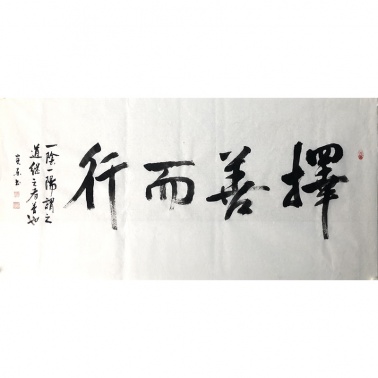 擇善而行
一陰一陽謂之
道繼之者善也